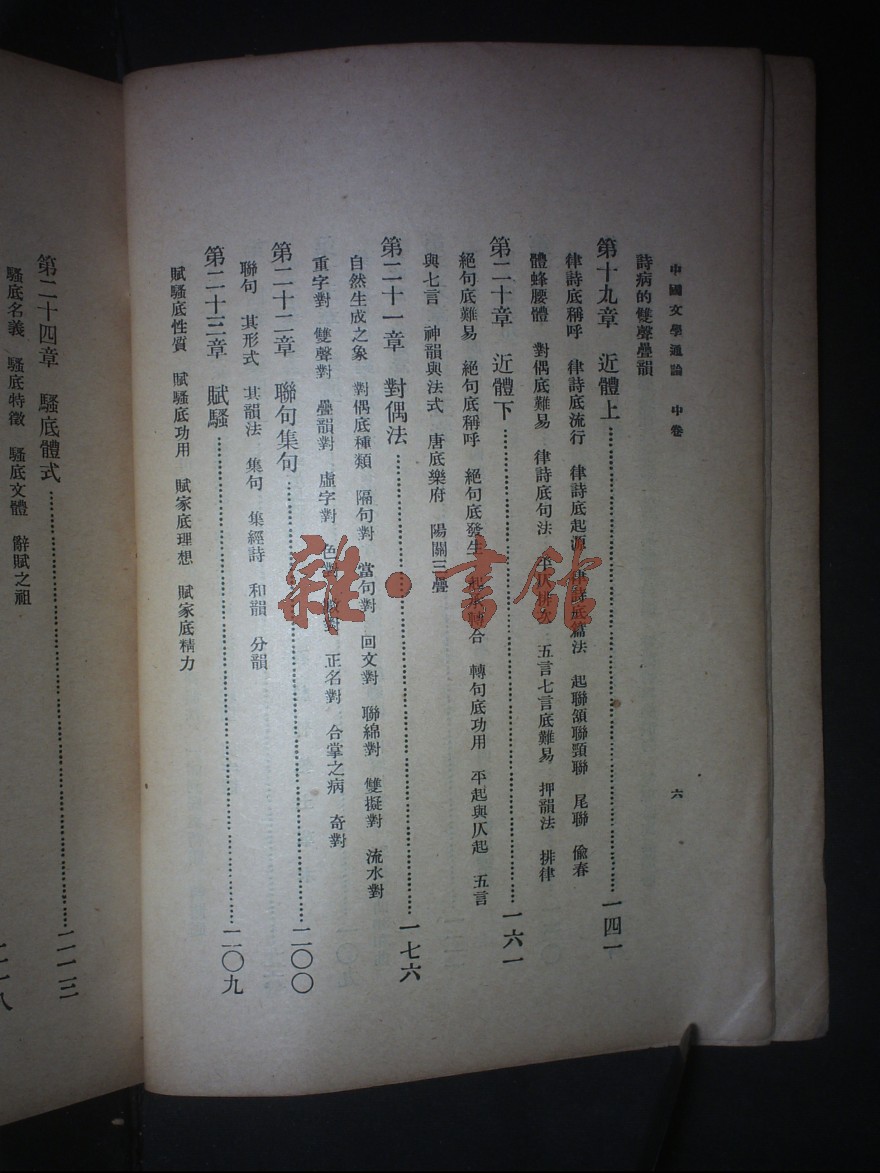 中國文學通論　中卷
六
詩病的雙聲疊韻
第十九章　近體上……一四一
律詩底稱呼　律詩底流行　律詩底起源　律詩底篇法　起聯頷聯頸聯　尾聯　偷春
體蜂腰體　對偶底難易　律詩底句法　平仄排次　五言七言底難易　押韻法　排律
第二十章　近體下……一六一
絕句底難易　絕句底稱呼　絕句底發生　起承轉合　轉句底功用　平起與仄起　五言
與七言　神韻與法式　唐底樂府　陽關三疊
第二十一章　對偶法……一七六
自然生成之象　對偶底種類　隔句對　當句對　回文對　聯綿對　雙擬對　流水對
重字對　雙聲對　疊韻對　虛字對　色對　數對　正名對　合掌之病　奇對
第二十二章　聯句集句……二〇〇
聯句　其形式　其韻法　集句　集經詩　和韻　分韻
第二十三章　賦騷……二〇九
賦騷底性質　賦騷底功用　賦家底理想　賦家底精力
第二十四章　騷底體式……二一三
騷底名義　騷底特徵　騷底文體　辭賦之祖
二一八
雜·書館